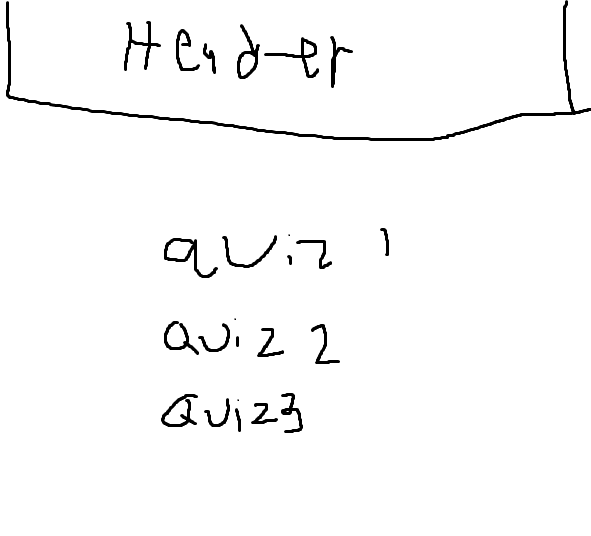 Header
quiz 1
Quiz 2
Quiz3